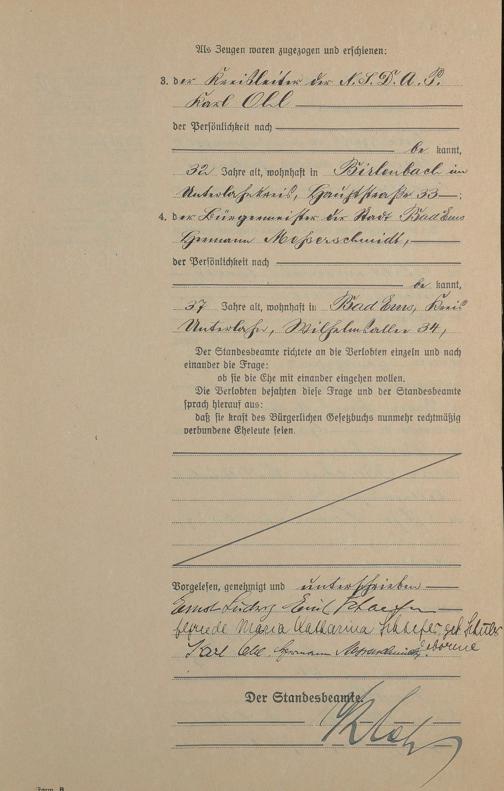 Als Zeugen waren zugezogen und erschienen:
3. der Kreisleiter der N.S.D.A.P.
Karl Oll
der Persönlichkeit nach
be kannt,
32 Jahre alt, wohnhaft in Birlenbach im
Unterlahnkreis, Hauptstraße 33;
4. der Bürgermeister der Stadt Bad Ems
Hermann Messerschmidt,
der Persönlichkeit nach
be kannt,
37 Jahre alt, wohnhaft in Bad Ems, Kreis
Unterlahn, Wilhelmsallee 34,
Der Standesbeamte richtete an die Verlobten einzeln und nach
einander die Frage:
ob sie die Ehe mit einander eingehen wollen.
Die Verlobten bejahten diese Frage und der Standesbeamte
sprach hierauf aus:
daß sie kraft des Bürgerlichen Gesetzbuchs nunmehr rechtmäßig
verbundene Eheleute seien.
Vorgelesen, genehmigt und unterschrieben
Ernst Ludwig Emil
Maria Katharina Schaefer, geb.
geborene
Karl Oll. Hermann Messerschmidt.
Der Standesbeamte.
Form. B